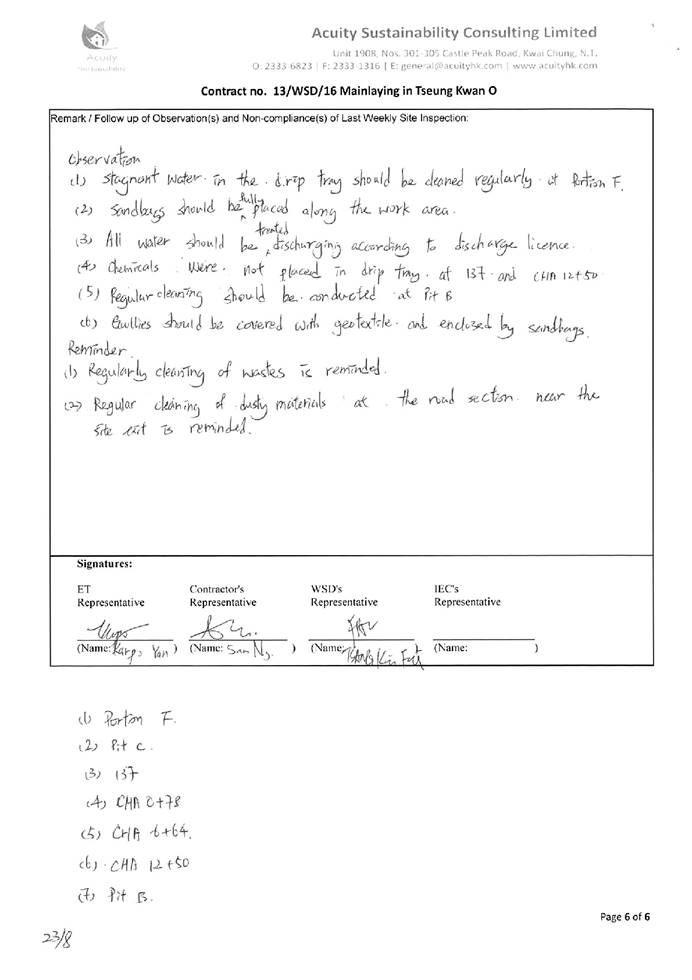 Acuity Sustainability Consulting Limited
Acuity
Sustainability
Unit 1908, Nos. 301-305 Castle Peak Road, Kwai Chung, N.T.
O: 2333-6823 | F: 2333-1316 | E: general@acuityhk.com | www.acuityhk.com
Contract no. 13/WSD/16 Mainlaying in Tseung Kwan O
Remark / Follow up of Observation(s) and Non-compliance(s) of Last Weekly Site Inspection:
Observation
(1) Stagnant water in the drip tray should be cleaned regularly at Portion F.
(2) Sandbags should be fully placed along the work area.
(3) All water should be treated discharging according to discharge licence.
(4) Chemicals were not placed in drip tray at 137 and CHA 12+50
(5) Regular cleaning should be conducted at Pit B
(6) Gullies should be covered with geotextile and enclosed by sandbags.
Reminder
(1) Regularly cleaning of wastes is reminded.
(2) Regular cleaning of dusty materials at the road section near the
site exit is reminded.
Signatures:
ET Contractor's WSD's IEC's
Representative Representative Representative Representative
(Name: Karpo Yan ) (Name: Sam Ng ) (Name: (Name: )
(1) Portion F.
(2) Pit C.
(3) 137
(4) CHA 0+78
(5) CHA 6+64.
(6) CHA 12+50
(7) Pit B.
Page 6 of 6
23/8